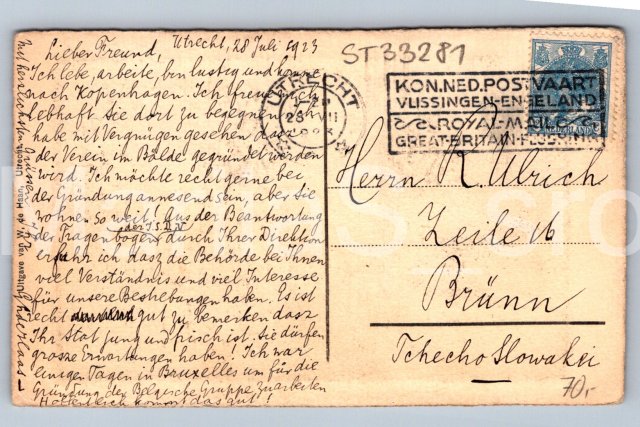 Utrecht, 28 Juli 1923
Lieber Freund,
Ich lebe, arbeite, bin lustig und komme
nach Kopenhagen. Ich freue mich
lebhaft Sie dort zu begegnen. Ich
habe mit Vergnügen gesehen dasz
der Verein im Bälde gegründet werden
wird. Ich möchte recht gerne bei
der Gründung annesend sein, aber Sie
wohnen so weit! Aus der Beantwortung
der Fragenbogen durch Ihrer Direktion
erfuhr ich dasz die Behörde bei Ihnen
viel Verständnis und viel Interesse
für unsere Bestrebungen haben. Es ist
recht gut zu bemerken dasz
Ihr Stat jung und frisch ist. Sie dürfen
grosze Erwartungen haben! Ich war
einigen Tagen in Bruxelles um für die
Gründung der Belgische Gruppe zu arbeiten
Hoffentlich kommt das gut!
Mit herzlichsten Grüssen
ST33281
UTRECHT
KON. NED. POSTVAART
VLISSINGEN-ENGELAND
ROYAL-MAIL
GREAT-BRITAIN-FLUSHING
NEDERLAND
Herrn R. Ulrich
Zeile 16
Brünn
Tchechoslowakei
70,-